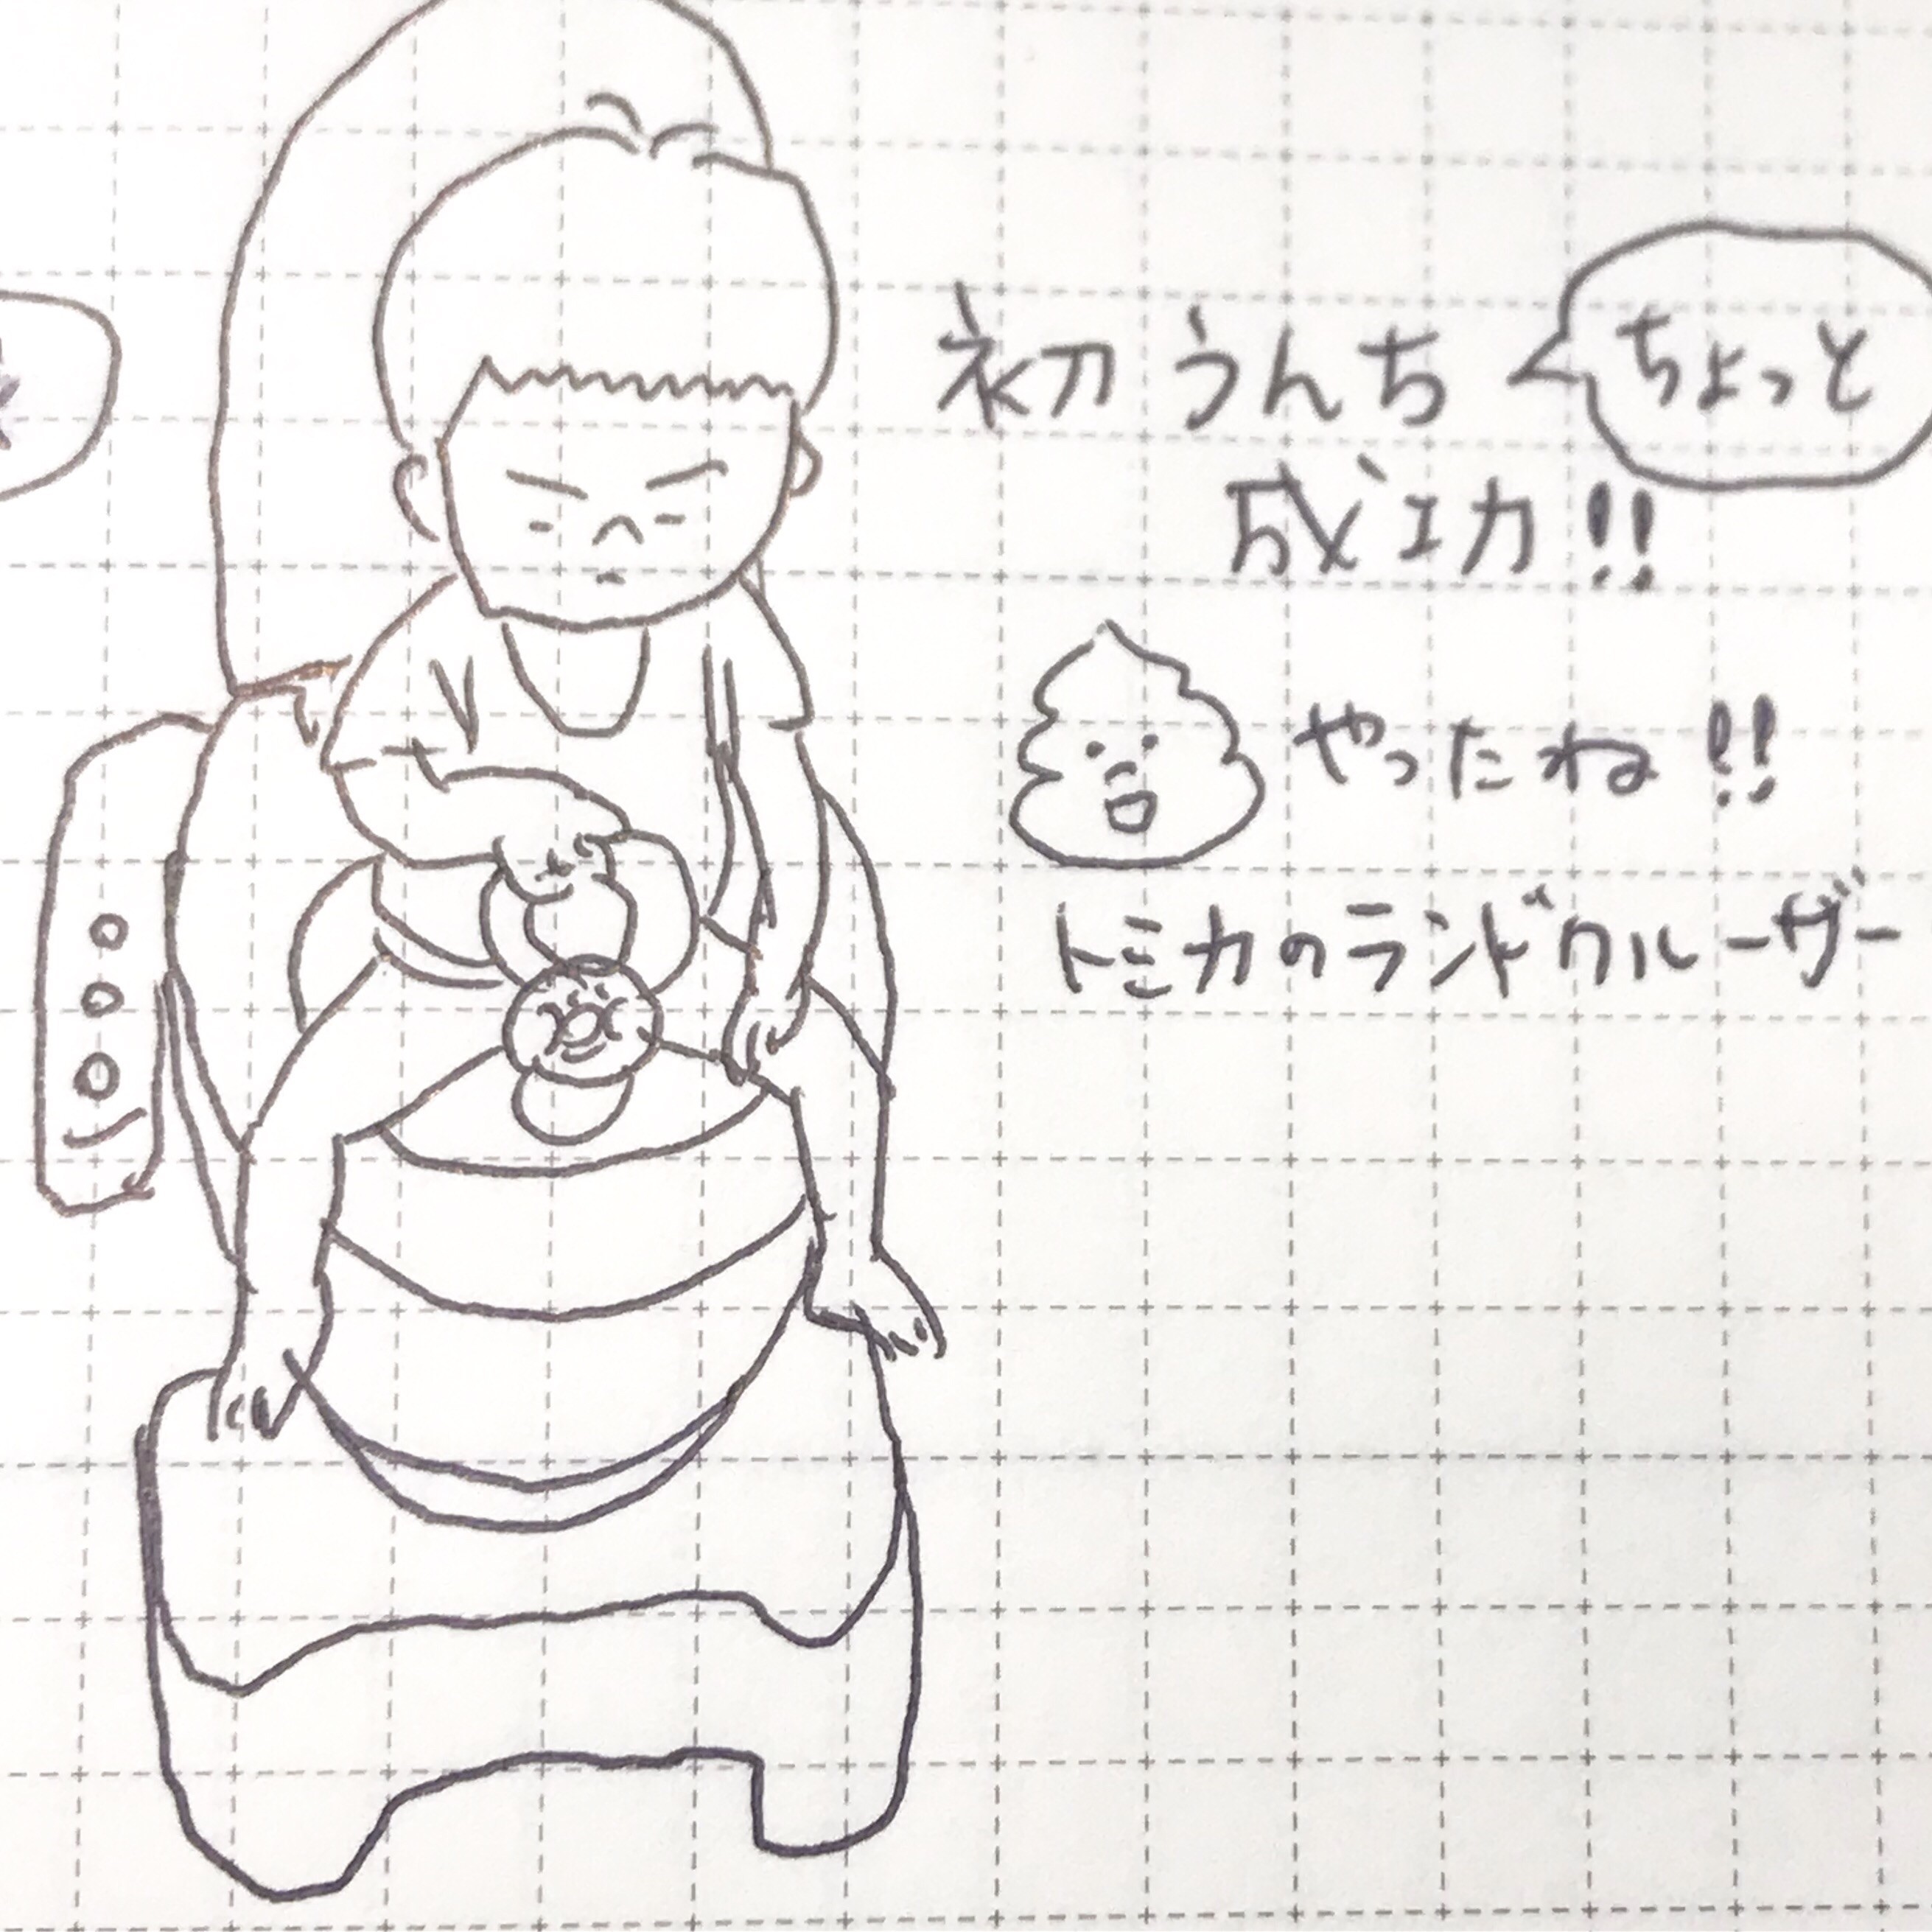 初うんち
ちょっと
成功!!
やったね!!
トミカのランドクルーザー